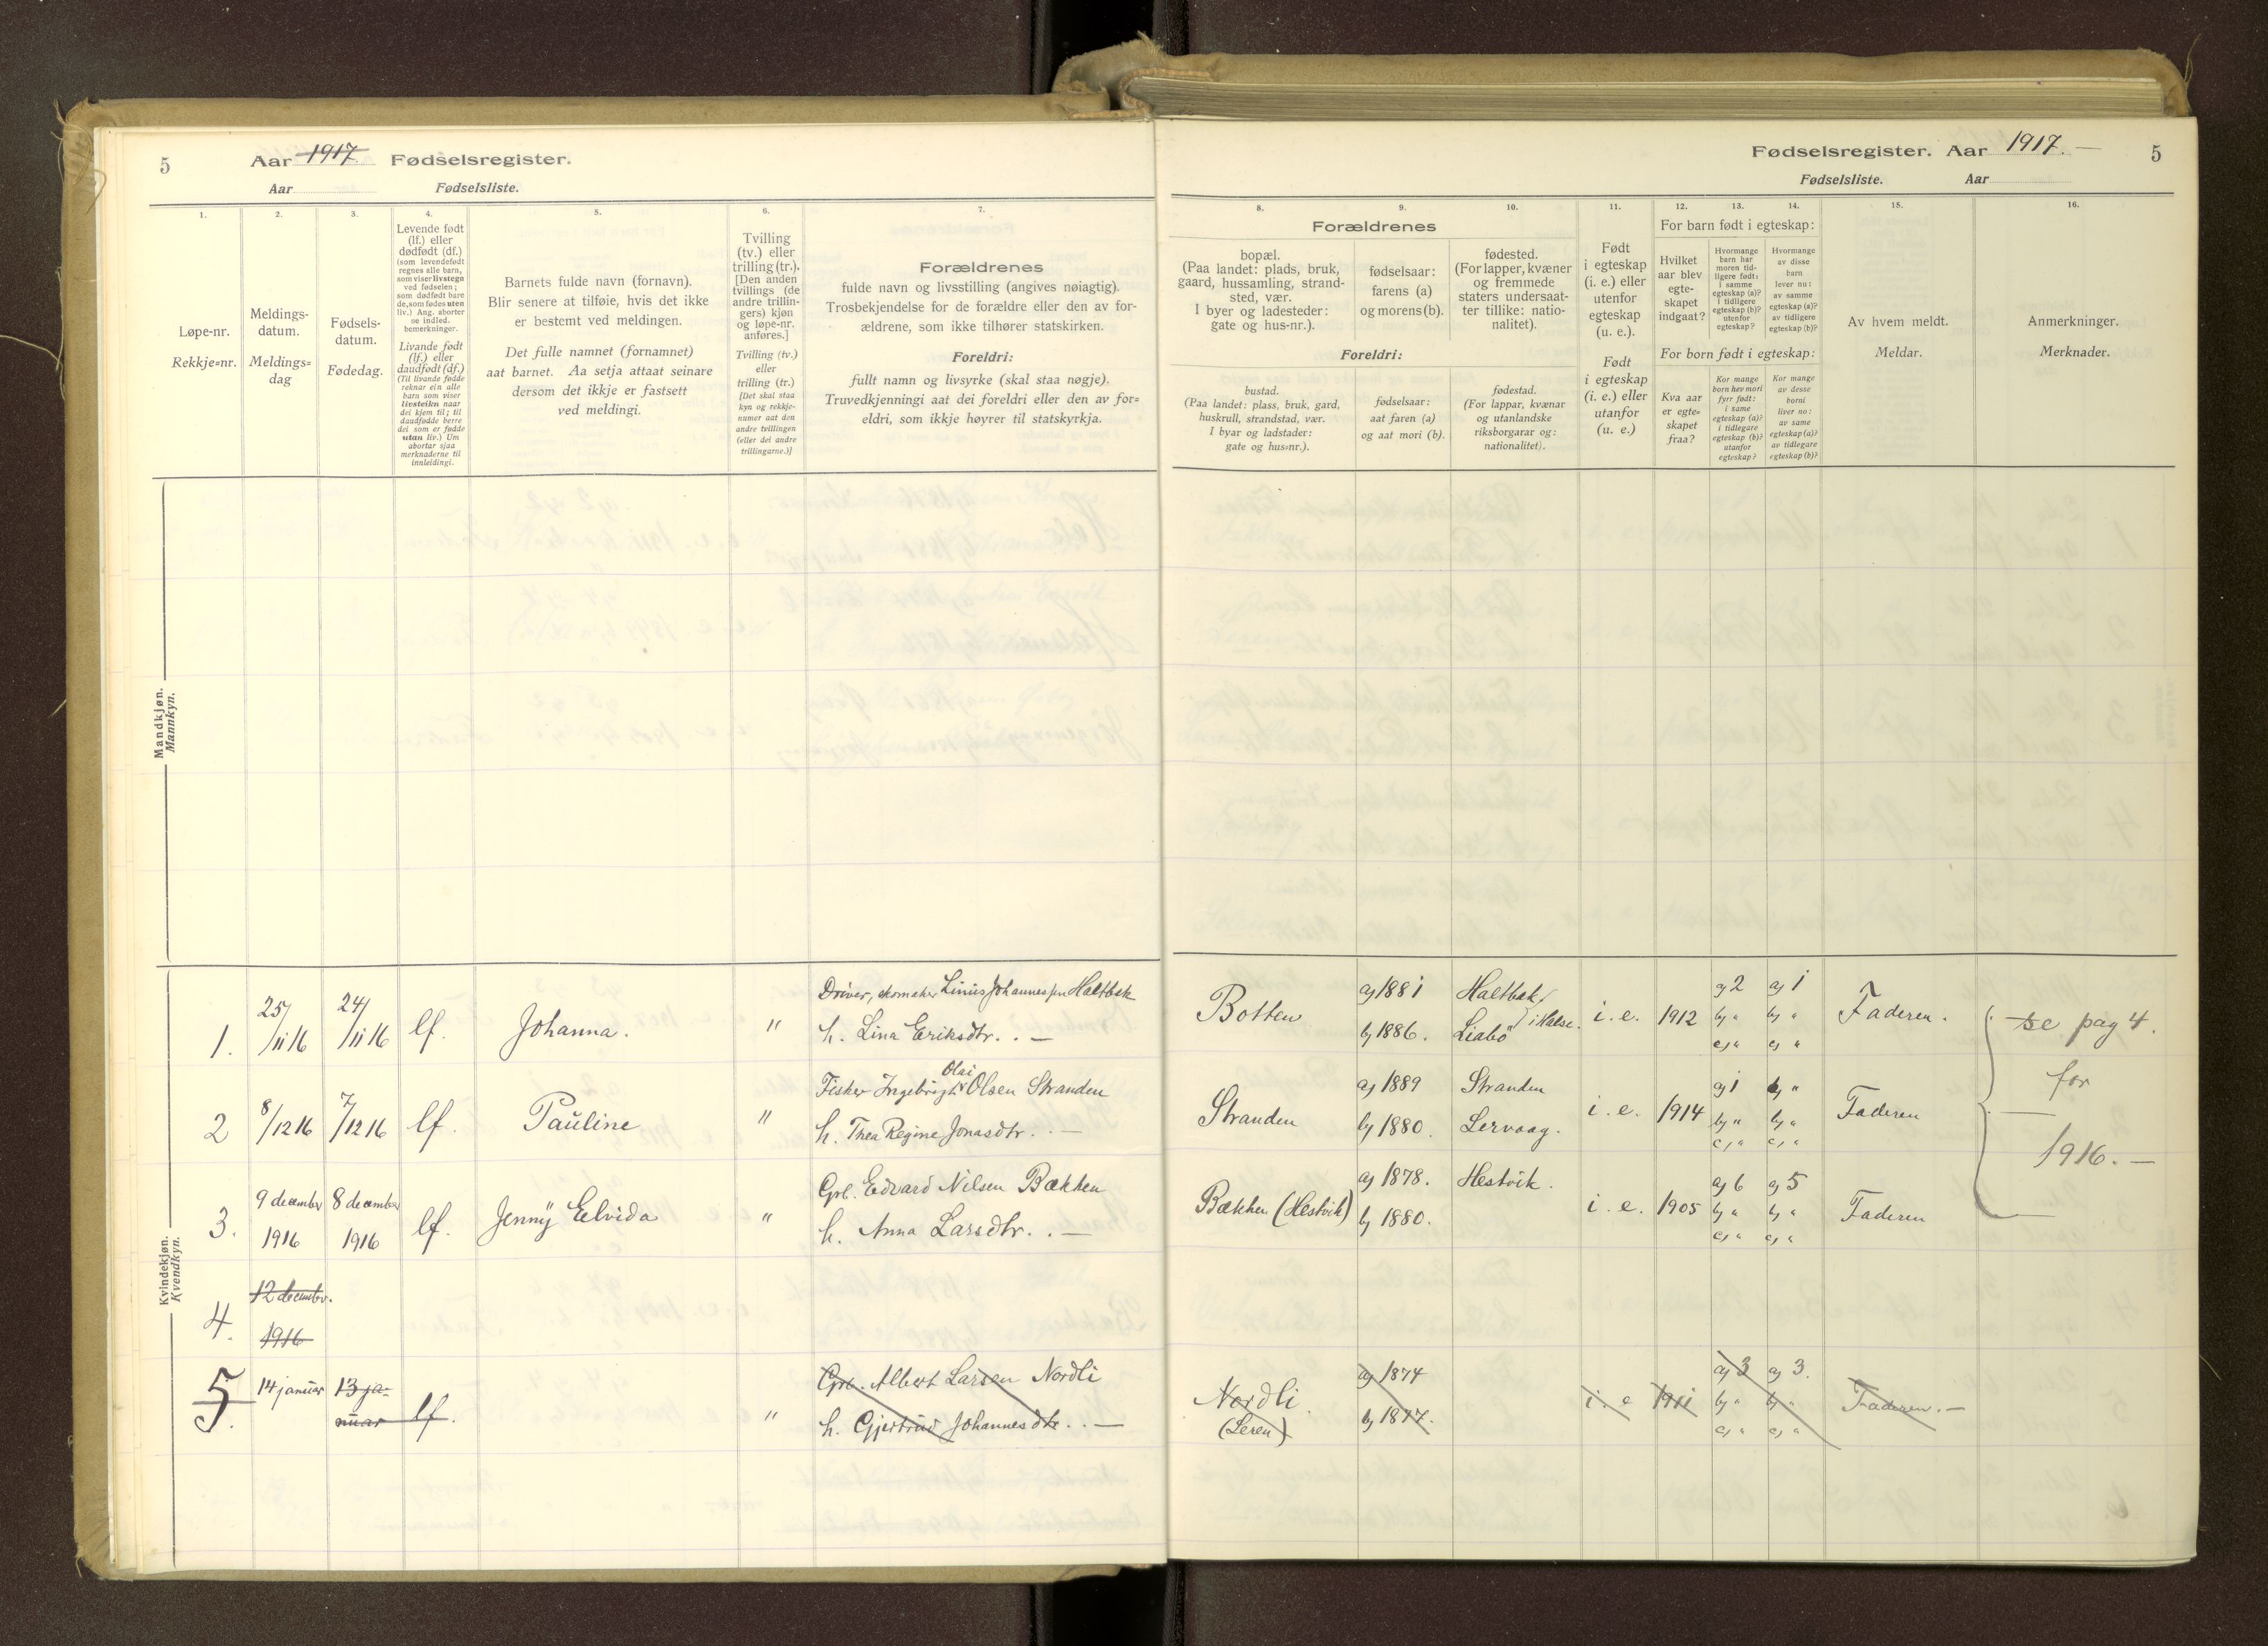 5
Aar 1917. Fødselsregister.
Aar Fødselsliste.
Fødselsregister. Aar 1917. —
5
Fødselsliste. Aar
1. 2. 3. 4. 5. 6. 7.
8. 9. 10. 11. 12. 13. 14. 15. 16.
Løpe-nr.
Rekkje=nr.
Meldings-
datum.
Meldings=
dag
Fødsels-
datum.
Fødedag.
Levende født
(lf.) eller
dødfødt (df.)
(som levendefødt
regnes alle barn,
som viser livstegn
ved fødselen;
som dødfødt bare
de, som fødes uten
liv.) Ang. aborter
se indled.
bemerkninger.
Livande født
(lf.) eller
daudfødt (df.)
(Til livande fødde
reknar ein alle
barn som viser
livsteikn naar
dei kjem til; til
daudfødde berre
dei som er fødde
utan liv.) Um
abortar sjaa
merknaderne til
innleidingi.
Barnets fulde navn (fornavn).
Blir senere at tilføie, hvis det ikke
er bestemt ved meldingen.
Det fulle namnet (fornamnet)
aat barnet. Aa setja attaat seinare
dersom det ikkje er fastsett
ved meldingi.
Tvilling
(tv.) eller
trilling (tr.).
[Den anden
tvillings (de
andre trillin-
gers) kjøn
og løpe-nr.
anføres.]
Tvilling (tv.)
eller
trilling (tr.)
[Det skal staa
kyn og rekkje-
numer aat den
andre tvillingen
(eller dei andre
trillingarne.)]
Forældrenes
fulde navn og livsstilling (angives nøiagtig).
Trosbekjendelse for de forældre eller den av for-
ældrene, som ikke tilhører statskirken.
Foreldri:
fullt namn og livsyrke (skal staa nøgje).
Truvedkjenningi aat dei foreldri eller den av for=
eldri, som ikkje høyrer til statskyrkja.
Forældrenes
bopæl.
(Paa landet: plads, bruk,
gaard, hussamling, strand-
sted, vær.
I byer og ladesteder:
gate og hus-nr.).
fødselsaar:
farens (a)
og morens (b).
fødested.
(For lapper, kvæner
og fremmede
staters undersaat-
ter tillike: natio-
nalitet).
Foreldri:
bustad.
(Paa landet: plass, bruk, gard,
huskrull, strandstad, vær.
I byar og ladstader:
gate og hus=nr.).
fødselsaar:
aat faren (a)
og aat mori (b).
fødestad.
(For lappar, kvænar
og utanlandske
riksborgarar og:
nationalitet).
Født
i egteskap
(i. e.) eller
utenfor
egteskap
(u. e.).
Født
i egteskap
(i. e.) eller
utanfor
(u. e.)
For barn født i egteskap:
Hvilket
aar blev
egte-
skapet
indgaat?
Hvormange
barn har
moren tid-
ligere født:
i samme
egteskap (a)?
i tidligere
egteskap (b)?
utenfor
egteskap?
Hvormange
av disse
barn
lever nu:
av samme
egteskap (a)?
av tidligere
egteskap (b)?
For born født i egteskap:
Kva aar
er egte=
skapet
fraa?
Kor mange
born hev mori
fyrr født:
i same
egteskap (a)?
i tidlegare
egteskap (b)?
utanfor
egteskap?
Kor mange
av desse
borni
liver no:
av same
egteskap (a)?
av tidlegare
egteskap (b)?
Av hvem meldt.
Meldar.
Anmerkninger.
Merknader.
Mandkjøn.
Mannkyn.
Kvindekjøn.
Kvendkyn.
1. 25/11 16 24/11 16 lf. Johanna. " Driver, skomaker Linus Johannessen Haltbak
h. Lina Eriksdtr. . —
Botten a) 1881 Haltbak
b) 1886. Liabö } i Halse.
i. e. 1912 a) 2 a) 1 Faderen.
b) " b) "
c) " c) "
2 8/12 16 7/12 16 lf. Pauline " Fisker Ingebrigt Olai Olsen Stranden
h. Thea Regine Jonasdtr. . —
Stranden a) 1889 Stranden
b) 1880. Lervaag.
i. e. 1914 a) 1 b) " Faderen
b) " b) "
c) " c) "
3. 9 december 1916 8 december 1916 lf. Jenny Elvida " Grb. Edvard Nilsen Bækken
h. Anna Larsdtr. . —
Bækken (Hestvik) a) 1878. Hestvik.
b) 1880.
i. e. 1905 a) 6 a) 5 Faderen
b) " b) "
c) " c) "
se pag 4.
for
1916. —
4. 12 decembr.
1916
5. 14 januar 13 ja-
nuar lf. " Grb. Albert Larsen Nordli
h. Gjertrud Johannesdtr. . —
Nordli.
(Leren)
a) 1874
b) 1877.
i. e 1911 a) 3 a) 3. Faderen. —
b) " b) "
c) " c) "